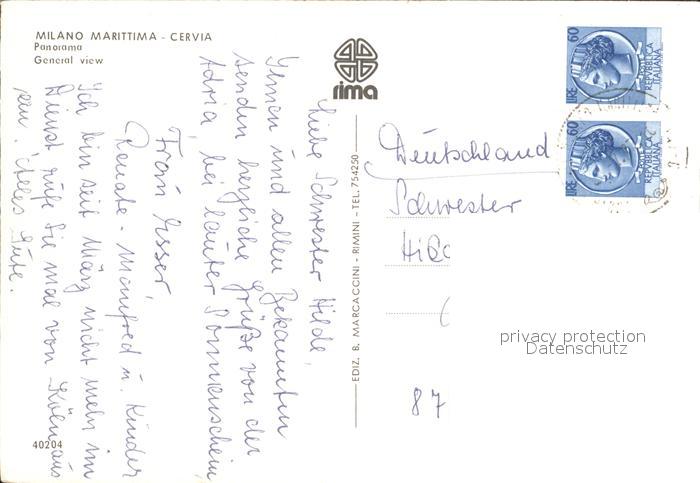 MILANO MARITTIMA - CERVIA
Panorama
General view
rima
Liebe Schwester Hilde,
Ihnen und allen Bekannten
senden herzliche Grüße von der
Adria, bei lauter Sonnenschein
Frau Esser,
Renate - Manfred u. Kinder
Ich bin seit März nicht mehr im
Dienst rufe Sie mal von Köln aus
an. Alles Gute.
40204
EDIZ. B. MARCACCINI - RIMINI - TEL. 754250
LIRE 60
REPVBBLICA
ITALIANA
LIRE 60
REPVBBLICA
ITALIANA
Deutschland
Schwester
Hil
87
privacy protection
Datenschutz